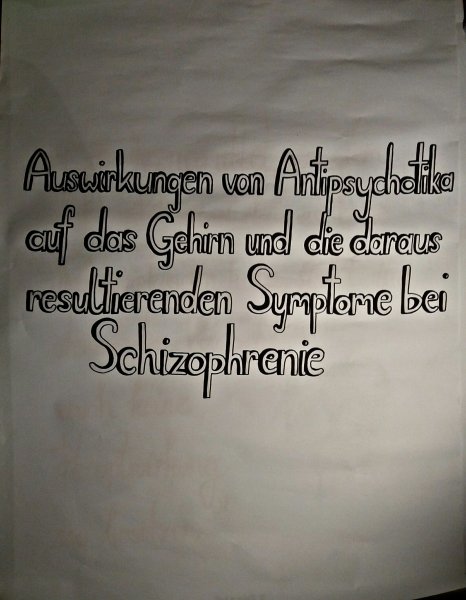 Auswirkungen von Antipsychotika
auf das Gehirn und die daraus
resultierenden Symptome bei
Schizophrenie